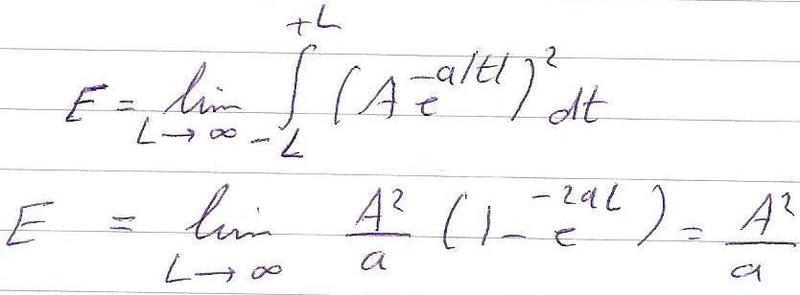 E = lim_{L→∞} ∫_{-L}^{+L} (A e^{-a|t|})² dt
E = lim_{L→∞} A²/a (1 - e^{-2aL}) = A²/a